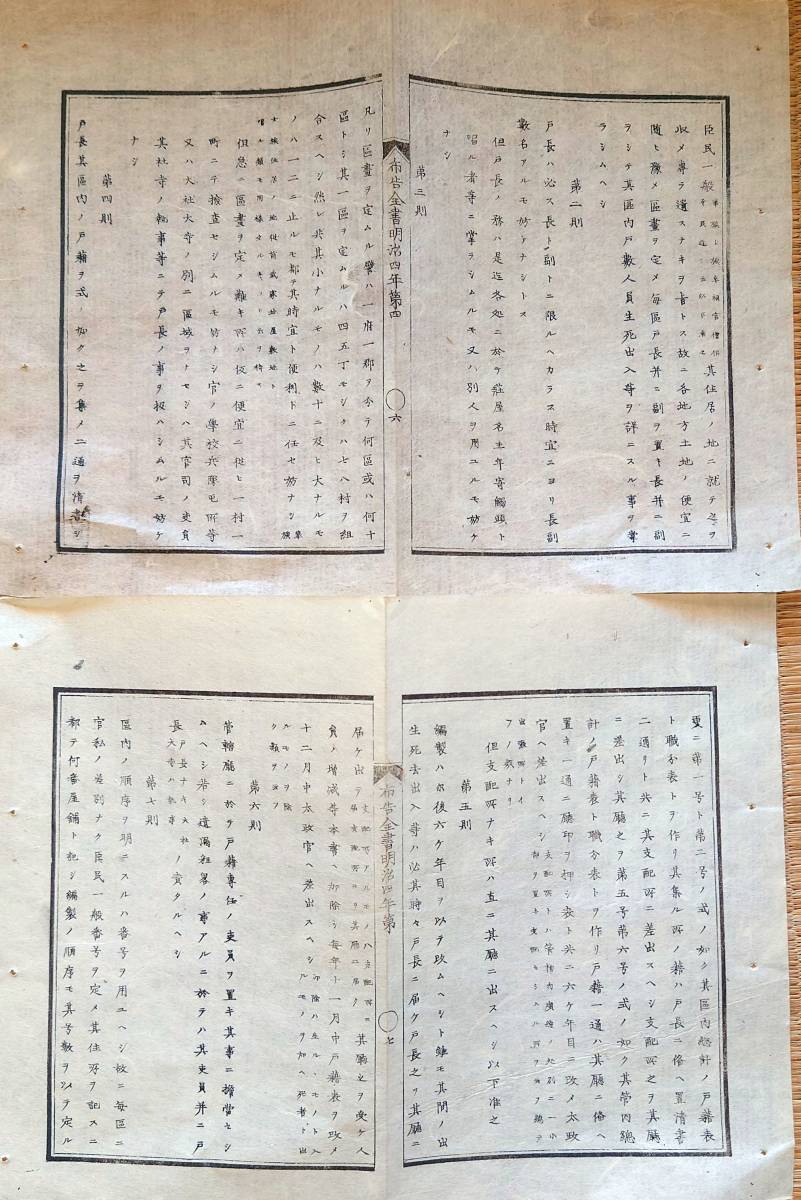 臣民一般 華族士族卒祠官僧侶平民迄ヲ云以下准之 其住居ノ地ニ就テ之ヲ
收メ專ラ遺スナキヲ旨トス故ニ各地方土地ノ便宜ニ
隨ヒ豫メ區畫ヲ定メ毎區戸長并ニ副ヲ置キ長并ニ副
ヲシテ其區内戸數人員生死出入等ヲ詳ニスル事ヲ掌
ラシムヘシ
第二則
戸長ハ必ス長ト副トニ限ルヘカラス時宜ニヨリ長副
數名アルモ妨ケナシトス
但戸長ノ務ハ是迄各処ニ於テ荘屋名主年寄觸頭ト
唱ル者等ニ掌ラシムルモ又ハ別人ヲ用ユルモ妨ケ
ナシ
第三則
布告全書明治四年第四
六
凡ソ區畫ヲ定ムル譬ハ一府一郡ヲ分テ何區或ハ何十
區トシ其一區ヲ定ムルハ四五丁モシクハ七八村ヲ組
合スヘシ然レ共其小ナルモノハ數十ニ及ヒ大ナルモ
ノハ一二ニ止ルモ都テ其時宜ト便利トニ任セ妨ナシ 華族
士族住居ノ地従前武家地屋敷地ト唱ル類モ同様タルヘキ
但急ニ區畫ヲ定メ難キ所ハ仮ニ便宜ニ従ヒ一村一
町ニテ檢査セシムルモ妨ナシ官ノ學校兵隊屯所等
又ハ大社大寺ノ別ニ區域ヲナセシハ其官司ノ吏員
其社寺ノ執事等ニテ戸長ノ事ヲ扱ハシムルモ妨ケ
ナシ
第四則
戸長其區内ノ戸籍ヲ式ノ如ク之ヲ集メ二通ヲ清書シ
更ニ第一号ト第二号ノ式ノ如ク其區内総計ノ戸籍表
ト職分表トヲ作リ其集ル所ノ籍ハ戸長ニ備ヘ置清書
二通リト共ニ其支配所ニ差出スヘシ支配所之ヲ其廳
ニ差出シ其廳之ヲ第五号第六号ノ式ノ如ク其管内總
計ノ戸籍表ト職分表トヲ作リ戸籍一通ハ其廳ニ備ヘ
置キ一通ニ廳印ヲ押シ表ト共ニ六ケ年目ニ改メ太政
官ヘ差出スヘシ 支配所トハ管轄内廣濶ノ処別ニ一小部ヲ置キ支配セシムル所ヲ云フ縣テ出張所トイフノ類ナリ
但支配所ナキ所ハ直ニ其廳ニ出スヘシ以下准之
第五則
編製ハ爾後六ケ年目ヲ以テ改ムヘシト雖モ其間ノ出
生死去出入等ハ必其時々戸長ニ届ケ戸長之ヲ其廳ニ
布告全書明治四年第
七
届ケ出テ 支配所アルモノハ支配所ニ届ケ支配所ヨリ其廳ニ届ク 其廳之ヲ受ケ人
員ノ増減等本書ヘ加除シ毎年十一月中戸籍表ヲ改メ
十二月中太政官ヘ差出スヘシ 加除ハ生ル丶モノト入ルモノヲ加ヘ死者ト出ルモノヲ除ク類ヲ云フ
第六則
管轄廳ニ於テ戸籍專任ノ吏員ヲ置キ其事ニ擔當セシ
ムヘシ若シ遺漏粗畧ノ事アルニ於テハ其吏員并ニ戸
長 戸長ナキ大社大寺ハ執事 ノ責タルヘシ
第七則
區内ノ順序ヲ明ニスルハ番号ヲ用ユヘシ故ニ毎區ニ
官私ノ差別ナク臣民一般番号ヲ定メ其住所ヲ記スニ
都テ何番屋舗ト記シ編製ノ順序モ其号數ヲ以テ定ル